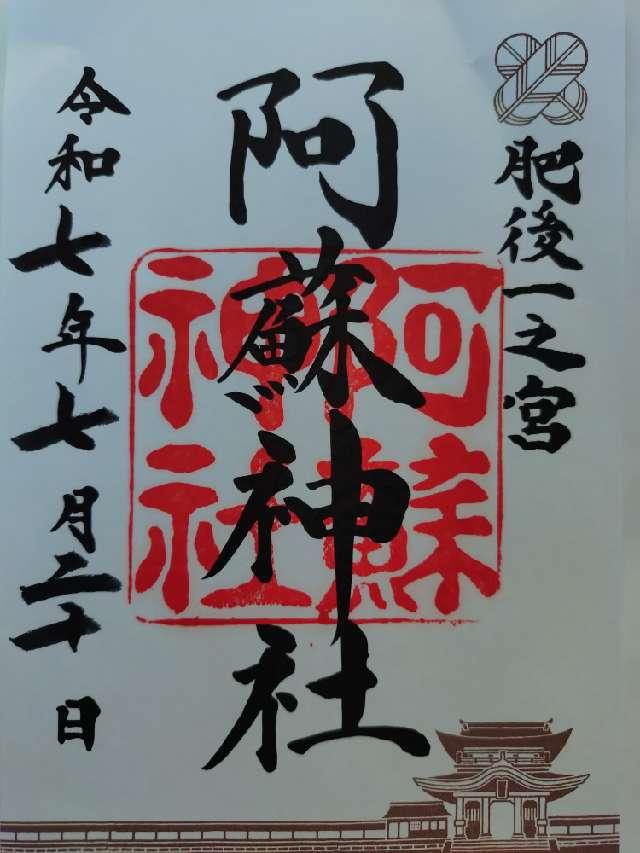 肥後一之宮
阿蘇神社
阿蘇神社
令和七年七月二十日